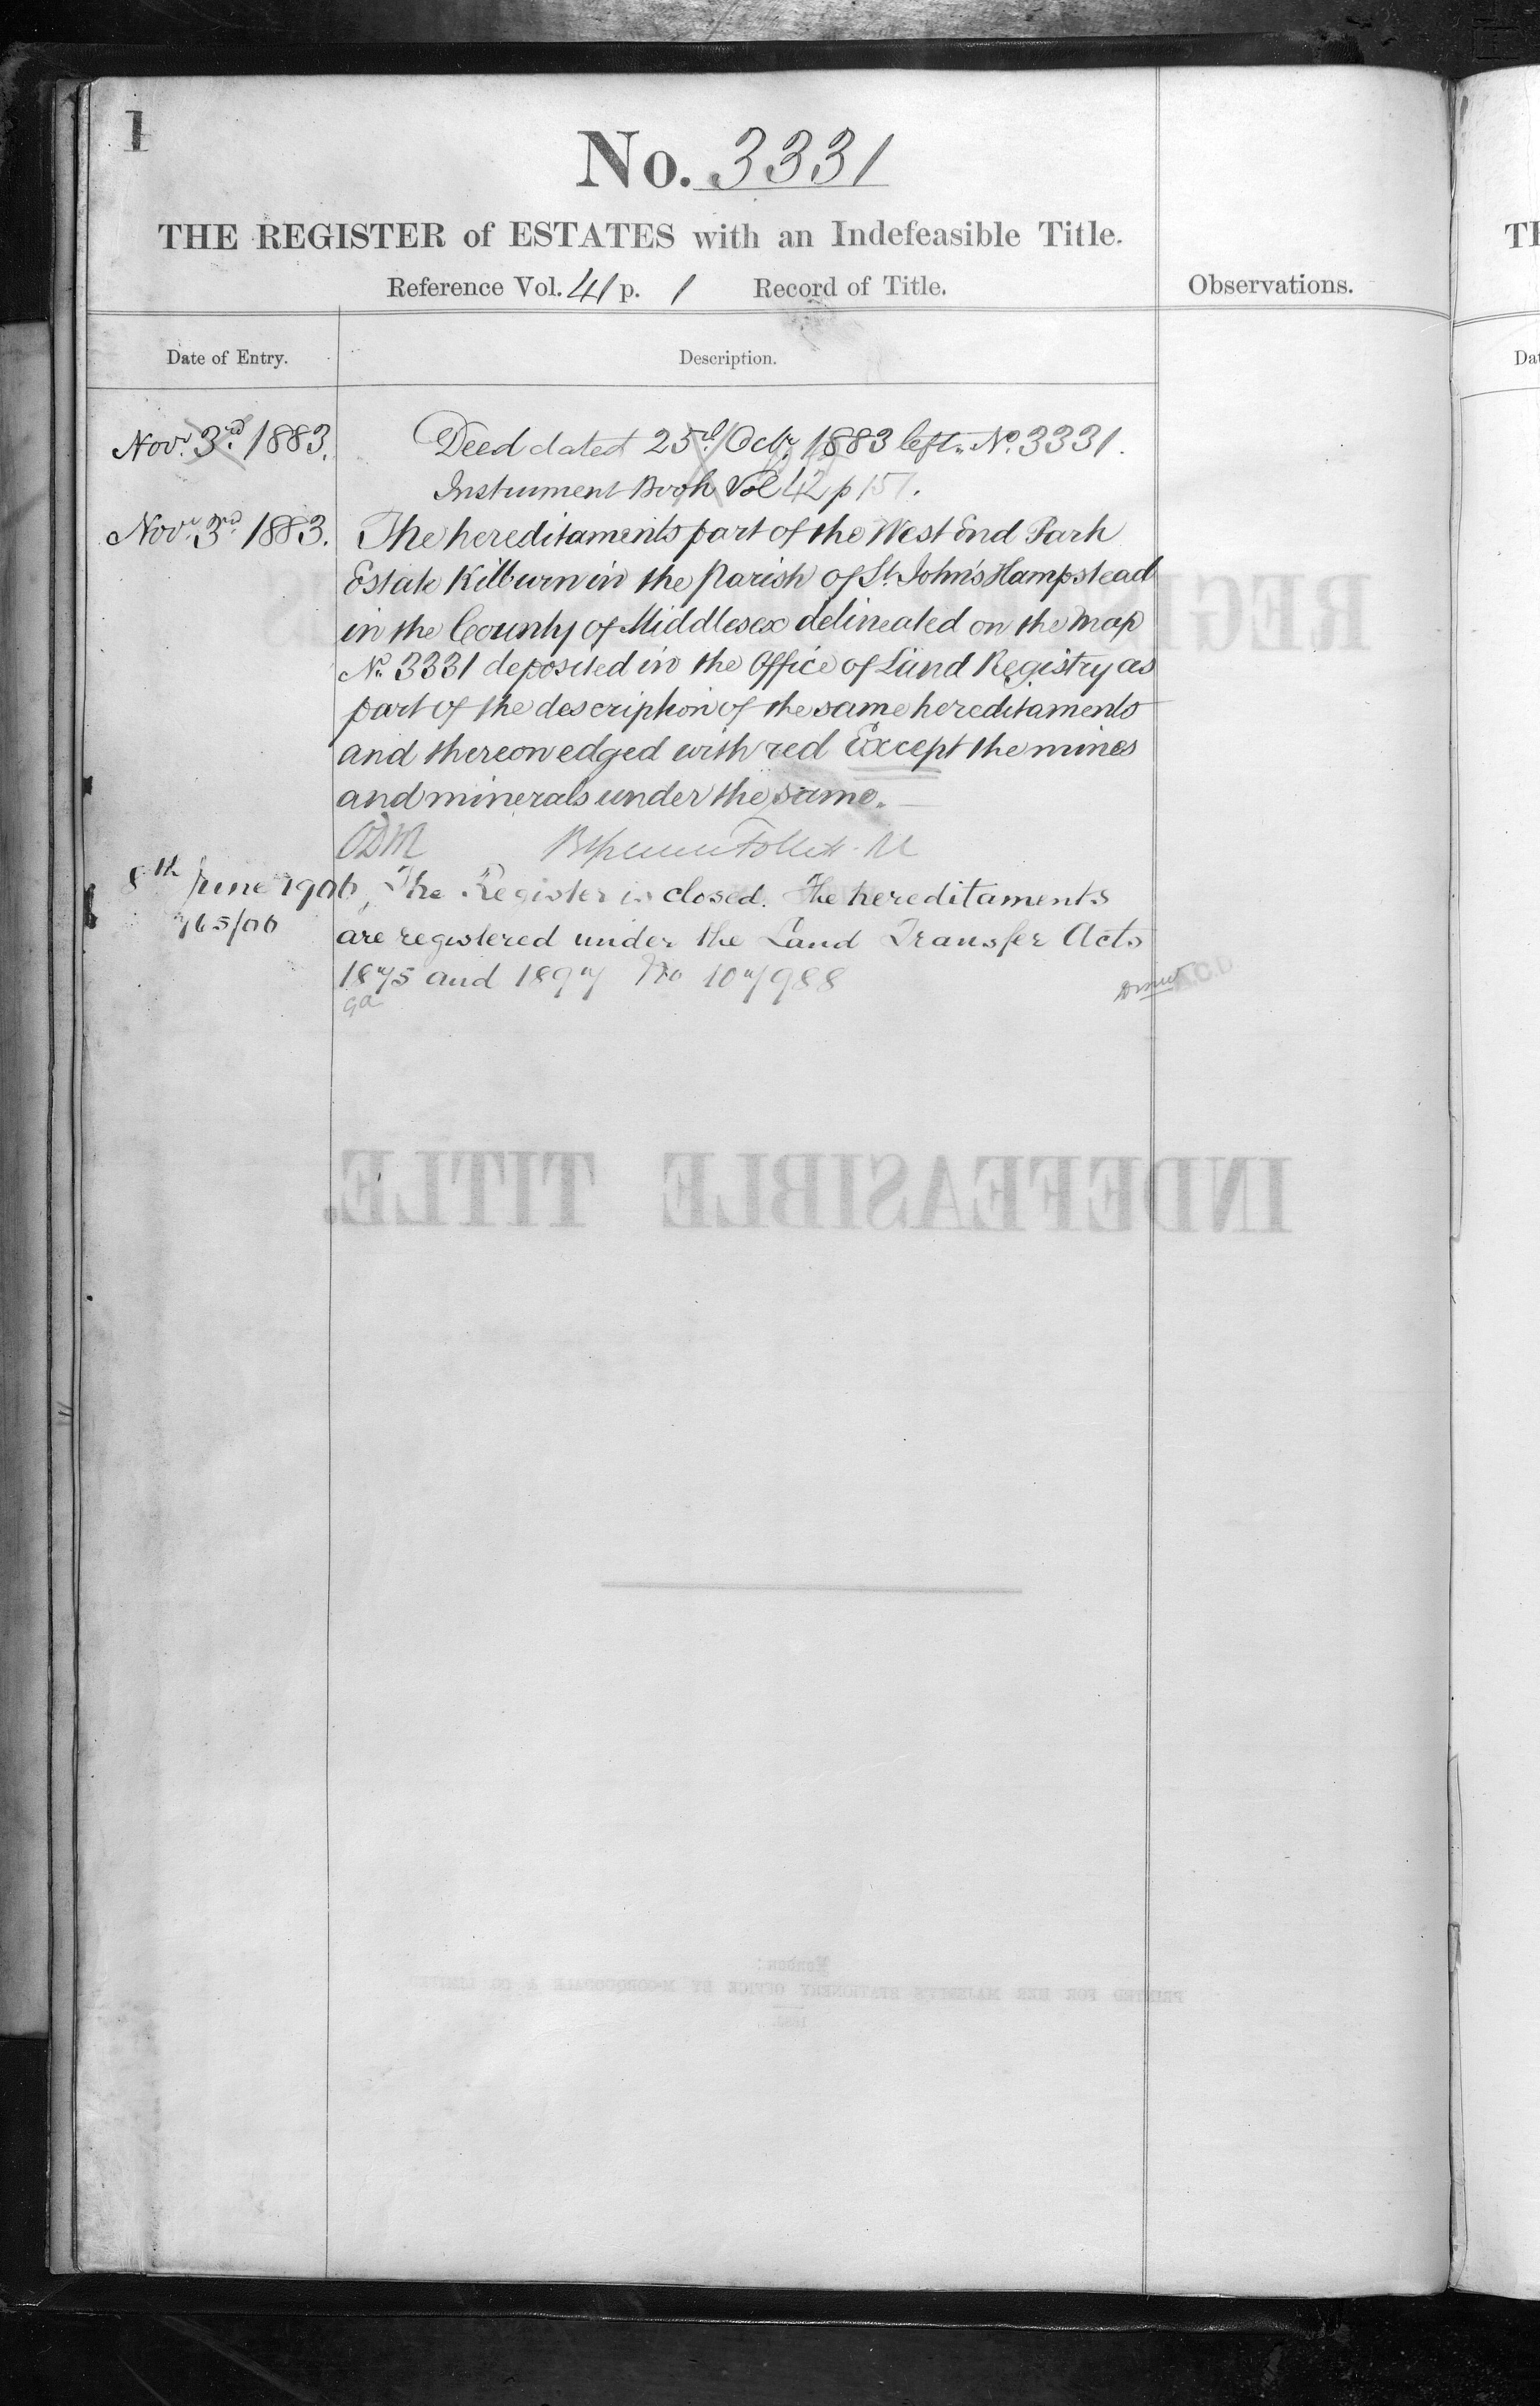 1
No. 3331
THE REGISTER of ESTATES with an Indefeasible Title.
Reference Vol. 41 p. 1 Record of Title.
Observations.
Date of Entry. Description.
Novr. 3rd. 1883. Deed dated 25th Octr. 1883 left. No. 3331.
Instrument Book Vol 42 p 157.
Novr. 3rd. 1883. The hereditaments part of the West End Park
Estate Kilburn in the Parish of St. John's Hampstead
in the County of Middlesex delineated on the map
No. 3331 deposited in the Office of Land Registry as
part of the description of the same hereditaments
and thereon edged with red Except the mines
and minerals under the same.
8th June 1906, The Register is closed. The hereditaments
765/06
are registered under the Land Transfer Acts
1875 and 1897 No 107988
INDEFEASIBLE TITLE.
PRINTED FOR HER MAJESTY'S STATIONERY OFFICE BY